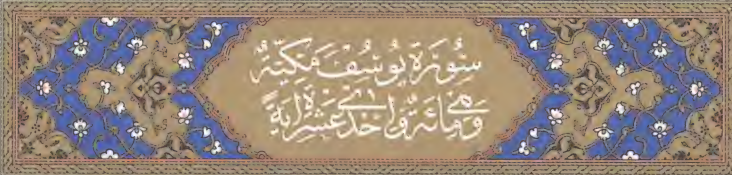 سُورَةُ يُوسُفَ مَكِّيَّةٌ
وَهِيَ مِائَةٌ وَاِحْدٰى عَشْرَةَ اٰيَةً